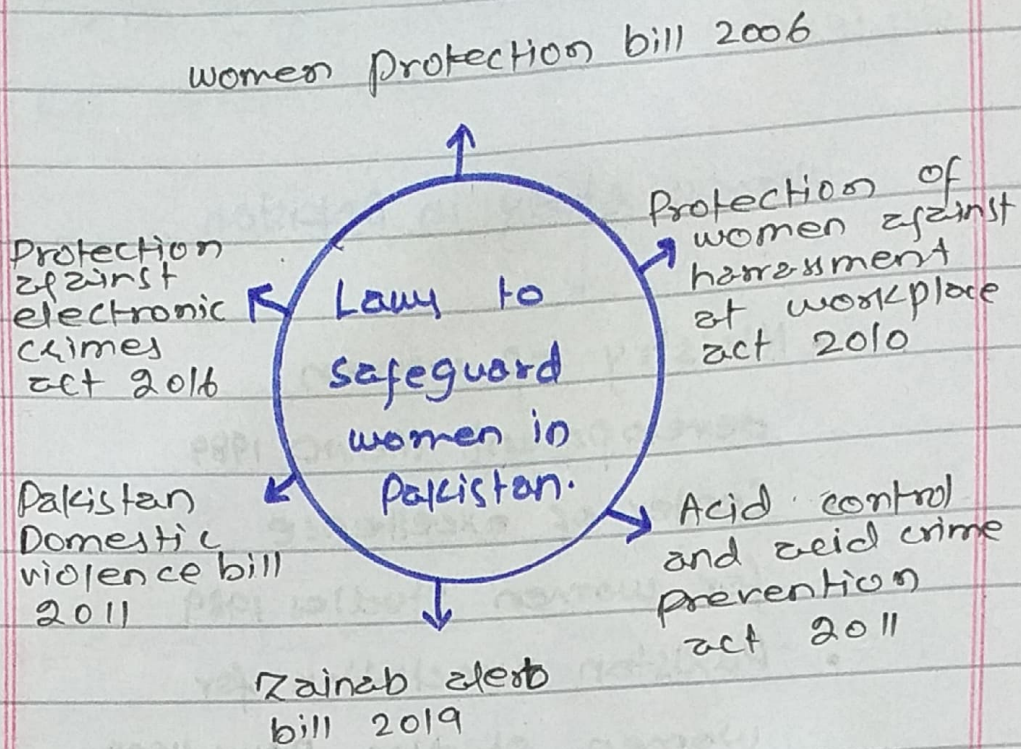 women protection bill 2006
Protection of
women against
harrassment
at workplace
act 2010
Protection
against
electronic
crimes
act 2016
Laws to
safeguard
women in
Pakistan.
Pakistan
Domestic
violence bill
2011
Acid control
and acid crime
prevention
act 2011
Zainab alert
bill 2019